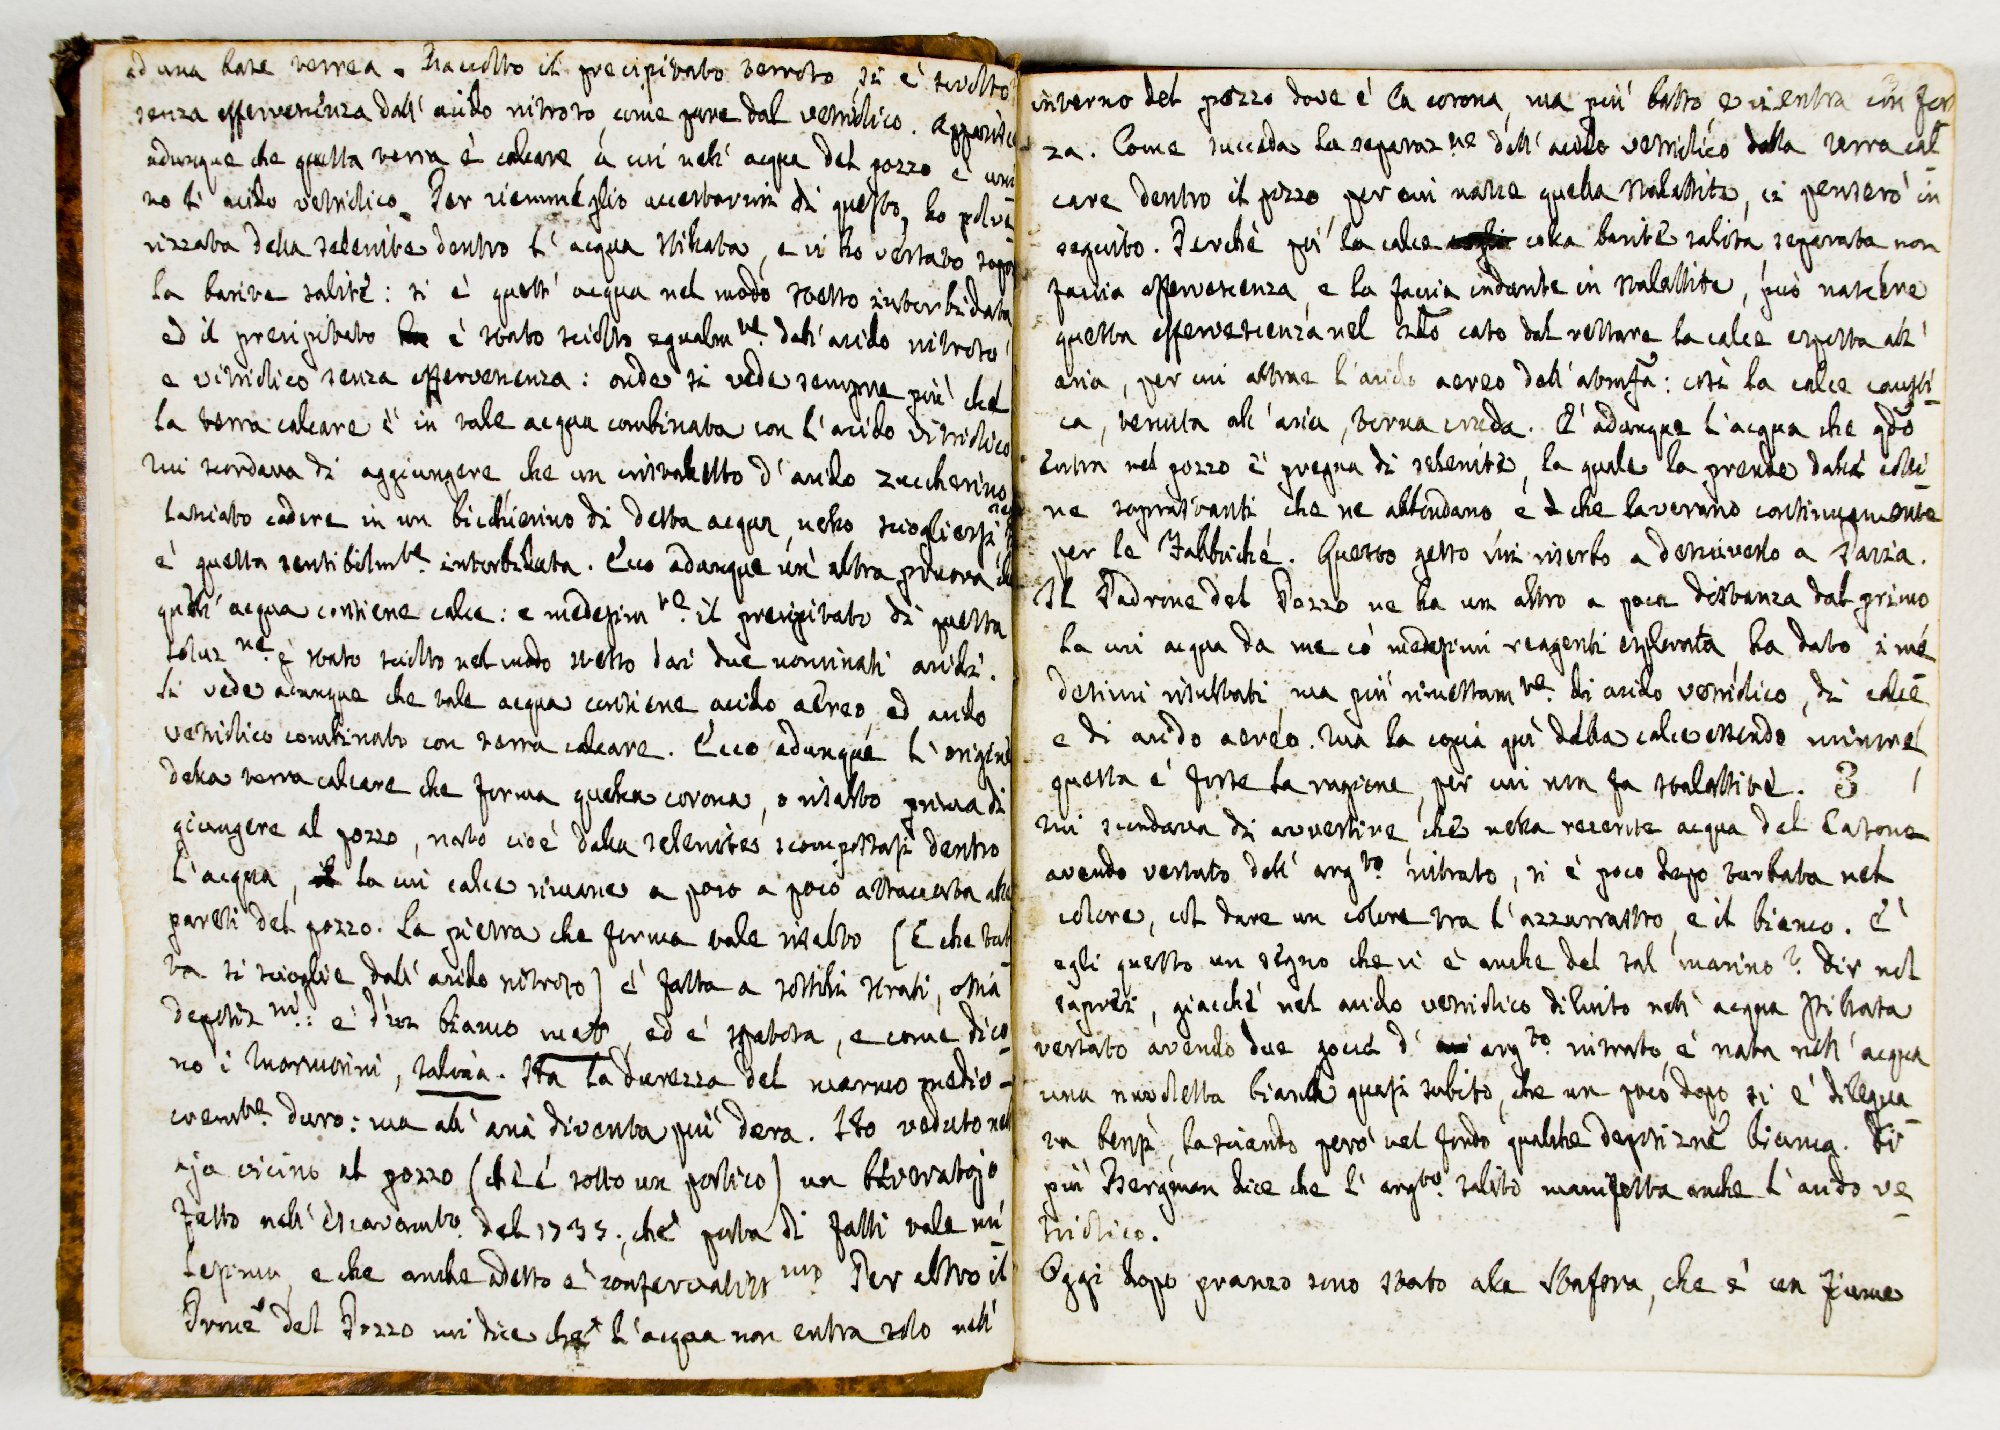 ad una base terrea. Raccolto il precipitato terroso, si è sciolto
senza effervescenza dall'acido nitroso, come pure dal vetriolico. Apparisce
adunque che quella terra è calcare a cui nell'acqua del pozzo è uni
to l'acido vetriolico. Per viemmeglio accertarmi di questo, ho polve
rizzata della selenite dentro l'acqua stillata, e vi ho versato sopra
la barite salité: si è quest'acqua nel modo stesso intorbidata
ed il precipitato è stato sciolto egualmte. dall'acido nitroso
e vitriolico senza effervescenza: onde si vede sempre più che
la terra calcare è in tale acqua combinata con l'acido vitriolico
Mi scordava di aggiungere che un cristalletto d'acido zuccherino
lasciato cadere in un bicchierino di detta acqua, nello sciogliersi
è quella sensibilmte. intorbidata. Ecco adunque un'altra pruova che
quest'acqua contiene calce: e medesimte. il precipitato di questa
soluzne. è stato sciolto nel modo stesso dai due nominati acidi.
Si vede adunque che tale acqua contiene acido aereo, ed acido
vetriolico combinato con terra calcare. Ecco adunque l'origine
della terra calcare che forma quella corona, o risalto prima di
giungere al pozzo, nato cioè dalla selenites scompostasi dentro
l'acqua, la cui calce rimane a poco a poco attaccata alle
pareti del pozzo. La pietra che forma tale risalto (e che tut
ta si scioglie dall'acido nitroso) è fatta a sottili strati, ossia
deposizni.: è d'un bianco , ed è spatosa, e come dico-
no i Marmorini, salina. Ha la durezza del marmo medio-
cremte. duro: ma all'aria diventa più dura. Ho veduto nell'
aja vicino al pozzo (ch'è sotto un portico) un beveratojo
fatto nell'escavamto. del 1735., che porta di fatti tale mi
lesimo, e che anche adesso è conservatissmo. Per altro il
Prone del Pozzo mi dice che l'acqua non entra solo nell'
interno del pozzo dove è la corona, ma più basso, e vi entra con for
za. Come succeda la separazne dell'acido vetriolico dalla terra cal
care dentro il pozzo per cui nasce quella stalattite, ci penserò in
seguito. Perchè poi la calce colla barite salita separata non
faccia effervescenza, e la faccia indurite in stalattite, può nascere
questa effervescenza nel sdo caso dal restare la calce esposta all'
aria, per cui attrae l'acido aereo dell'atmosfa: così la calce causti
ca, tenuta all'aria, torna cruda. È adunque l'acqua che qdo
entra nel pozzo è pregna di selenite, la quale la prende dalle colli
ne soprastanti che ne abbondano, e che lavorano continuamente
per le Fabbriche. Questo gesso mi riserbo a descriverlo a Pavia.
Il Padrone del Pozzo ne ha un altro a poca distanza dal primo
la cui acqua da me co' medesimi reagenti esplorata, ha dato i me
desimi risultati, ma più rimessam te. di acido vetriolico, di calce
e di acido aereo. Ma la copia quì della calce essendo minore
questa è forse la ragione, per cui non fa stalattite. 3
Mi scordava di avvertire, che nella recente acqua del Casone
avendo versato dell'argto. nitrato, si è poco dopo turbata nel
colore, col dare un colore tra l'azzurrastro, e il bianco. È
egli questo un segno che vi è anche del sal marino? Dir nol
saprei, giacchè nel acido vetriolico diluito nell'acqua stillata
versato avendo due gocce d' argto. nitrato è nata nell'acqua
una nuvoletta bianca quasi subito, che un poco dopo si è dilegua
ta bensì, lasciando però nel fondo qualche deposizne bianca. Di
più Bergman dice che l'argto. salito manifesta anche l'acido ve
triolico.
Oggi dopo pranzo sono stato alla Staffora, che è un fiume